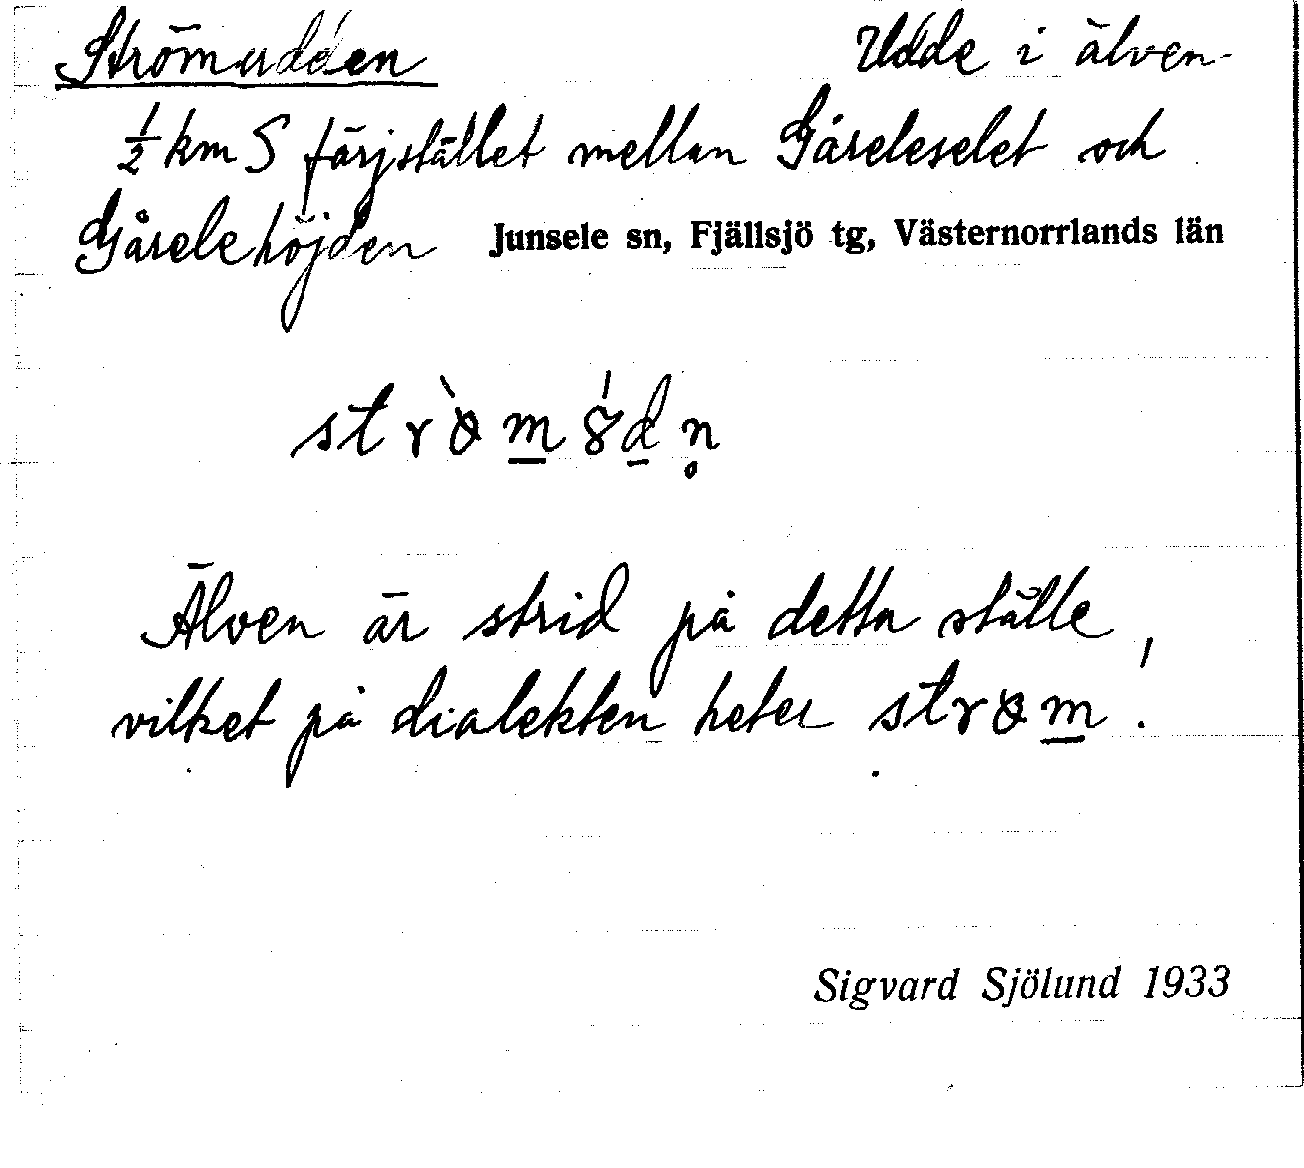 Strömudden Udde i älven
½ km S färjstället mellan Gåreleselet och
Gårelehöjden Junsele sn, Fjällsjö tg, Västernorrlands län
Älven är strid på detta ställe,
vilket på dialekten heter
Sigvard Sjölund 1933